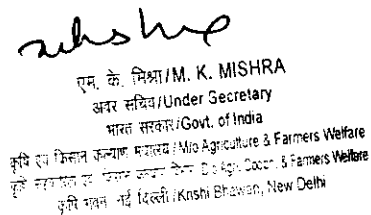 एम. के. मिश्रा/M. K. MISHRA
अवर सचिव/Under Secretary
भारत सरकार/Govt. of India
कृषि एवं किसान कल्याण मंत्रालय/M/o Agriculture & Farmers Welfare
कृषि किसान कल्याण D/o Agri. & Farmers Welfare
कृषि भवन नई दिल्ली/Krishi Bhawan, New Delhi